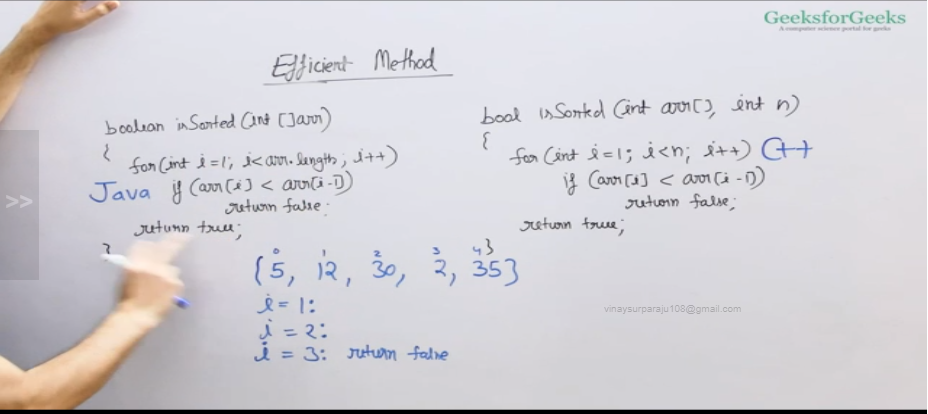 GeeksforGeeks
A computer science portal for geeks
Efficient Method
boolean isSorted (int []arr)
{
for(int i=1; i<arr.length; i++)
Java
if (arr[i] < arr[i-1])
return false;
return true;
}
bool isSorted (int arr[], int n)
{
for (int i=1; i<n; i++)
C++
if (arr[i] < arr[i-1])
return false;
return true;
}
0 1 2 3 4
{5, 12, 30, 2, 35}
i = 1:
i = 2:
i = 3: return false
vinaysurparaju108@gmail.com
>>